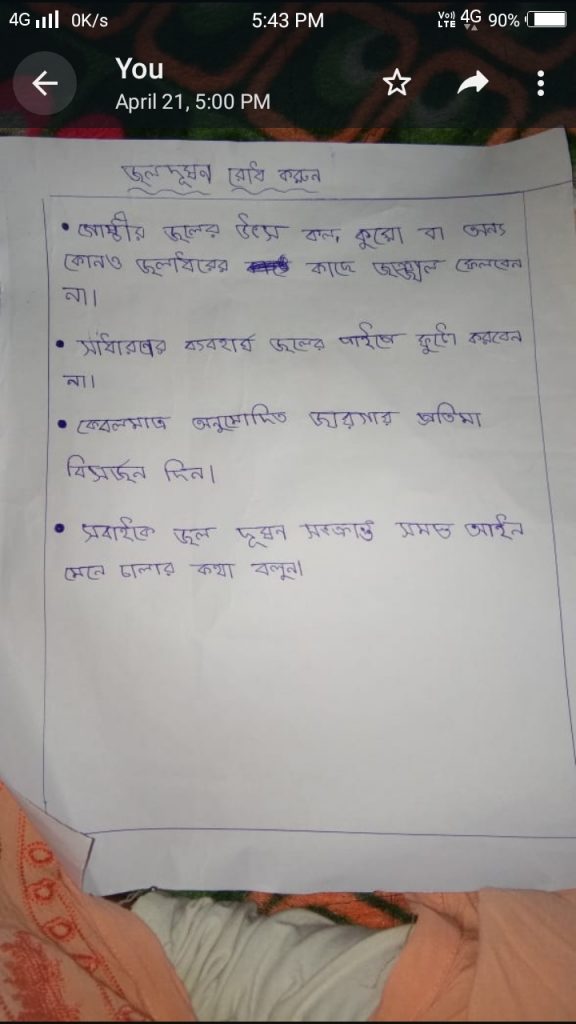 4G 0K/s 5:43 PM Vo)) LTE 4G 90%
You
April 21, 5:00 PM
জলদূষন রোধ করুন
• গোষ্ঠীর জলের উৎস কল, কুয়ো বা অন্য
কোনও জলাধারের কাছে জঞ্জাল ফেলবেন
না।
• সাধারণের ব্যবহার্য জলের পাইপে ফুটো করবেন
না।
• কেবলমাত্র অনুমোদিত জায়গায় প্রতিমা
বিসর্জন দিন।
• সবাইকে জল দূষন সংক্রান্ত সমস্ত আইন
মেনে চলার কথা বলুন।